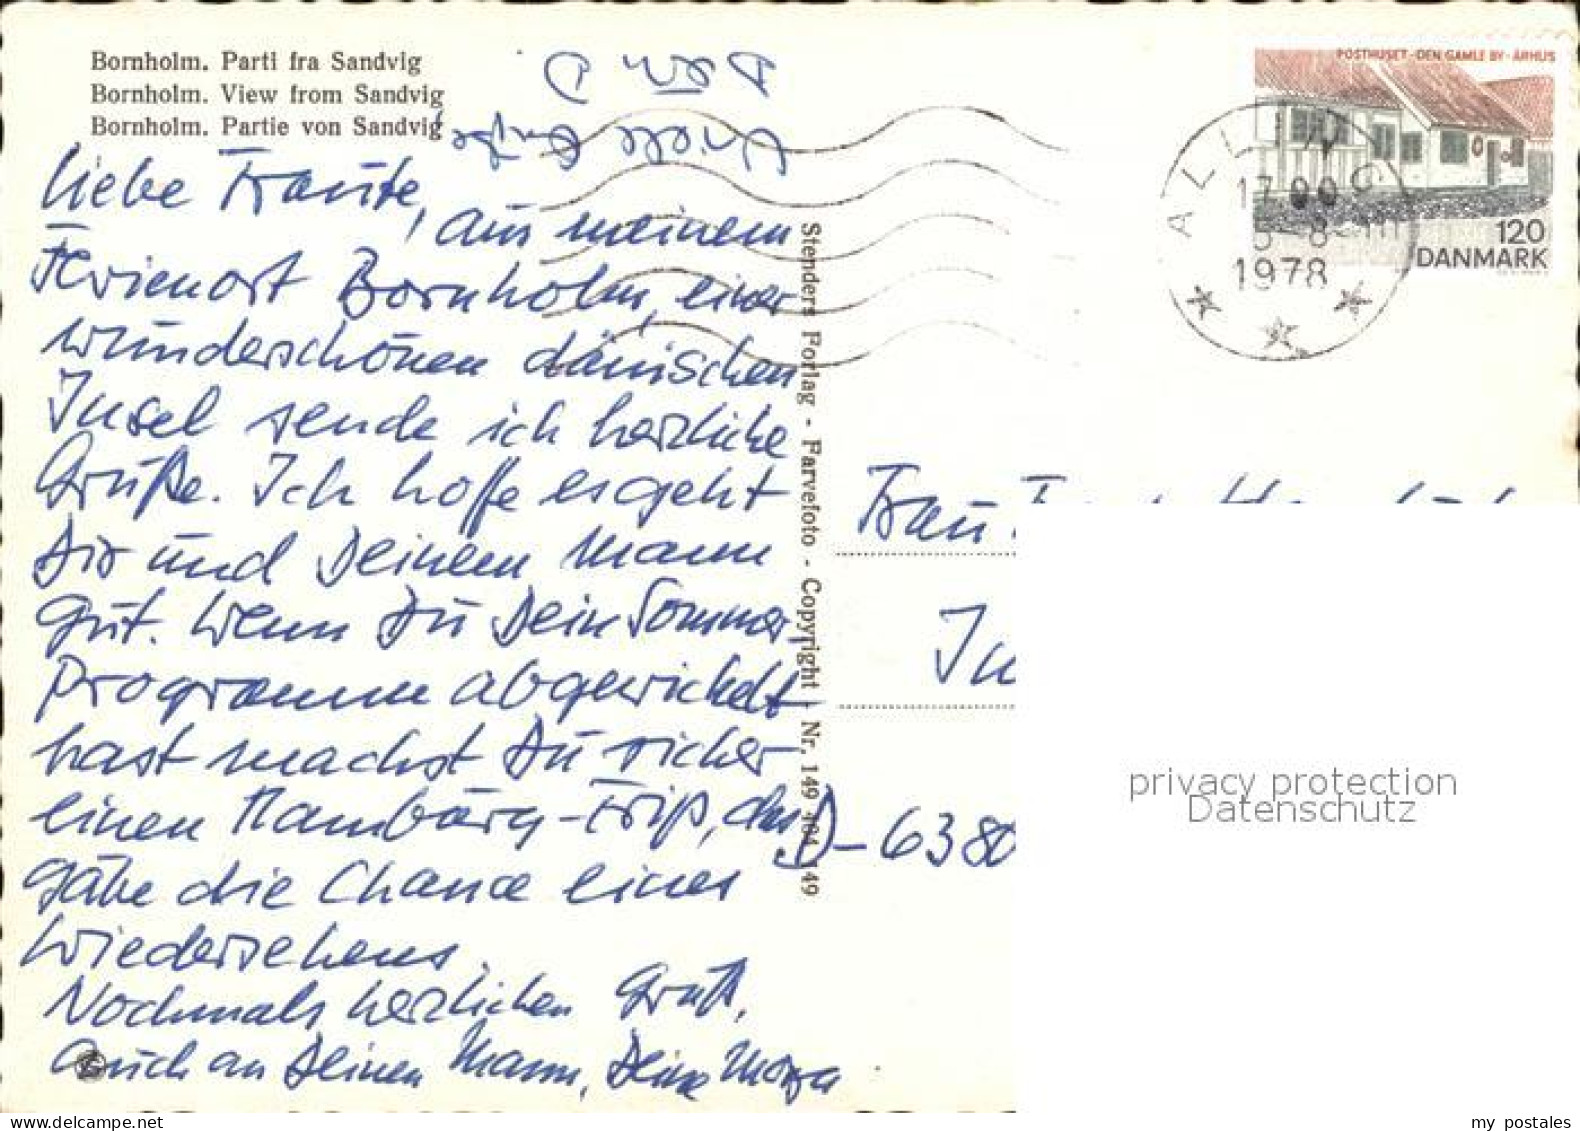 Bornholm. Parti fra Sandvig
Bornholm. View from Sandvig
Bornholm. Partie von Sandvig
POSTHUSET - DEN GAMLE BY - ÅRHUS
120
DANMARK
ALLINGE
17.00
1978
Liebe Traute,
aus meinem
Ferienort Bornholm, einer
wunderschönen dänischen
Insel sende ich herzliche
Grüße. Ich hoffe es geht
Dir und Deinem Mann
gut. Wenn Du Dein Sommer-
Programm abgewickelt
hast machst Du sicher
einen Hamburg-Trip, das
gäbe die Chance eines
Wiedersehens.
Nochmals herzlichen Gruß,
auch an Deinen Mann, Deine
Stenders Forlag - Farvefoto - Copyright - Nr. 149 404 149
Frau
D-6380
privacy protection
Datenschutz
my postales